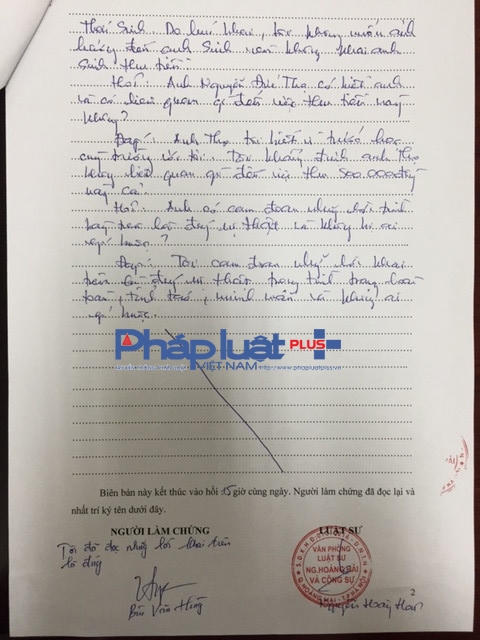 Thái Sinh. Do lúc khai, tôi không muốn ảnh
hưởng đến anh Sinh nên không khai anh
Sinh thu tiền
Hỏi: Anh Nguyễn Đức Thọ có biết anh
và có liên quan gì đến việc thu tiền này
không?
Đáp: Anh Thọ tôi biết vì trước học
cùng trường với tôi. Tôi khẳng định anh Thọ
không liên quan gì đến việc thu 500.000đ
này cả.
Hỏi: Anh có cam đoan những lời trình
bày trên là đúng sự thật và không bị ai
ép buộc?
Đáp: Tôi cam đoan những lời khai
trên là đúng sự thật, trong tình trạng hoàn
toàn tỉnh táo, minh mẫn và không ai
ép buộc.
Pháp luật PLUS
VIỆT NAM http://www.phapluatplus.vn
Biên bản này kết thúc vào hồi 15 giờ cùng ngày. Người làm chứng đã đọc lại và
nhất trí ký tên dưới đây.
NGƯỜI LÀM CHỨNG LUẬT SƯ
Tôi đã đọc những lời khai trên
là đúng
VĂN PHÒNG
LUẬT SƯ
NG.HOÀNG HẢI
VÀ CỘNG SỰ
Q.HOÀNG MAI - T.P HÀ NỘI
2
Bùi Văn Hùng Nguyễn Hoàng Hải